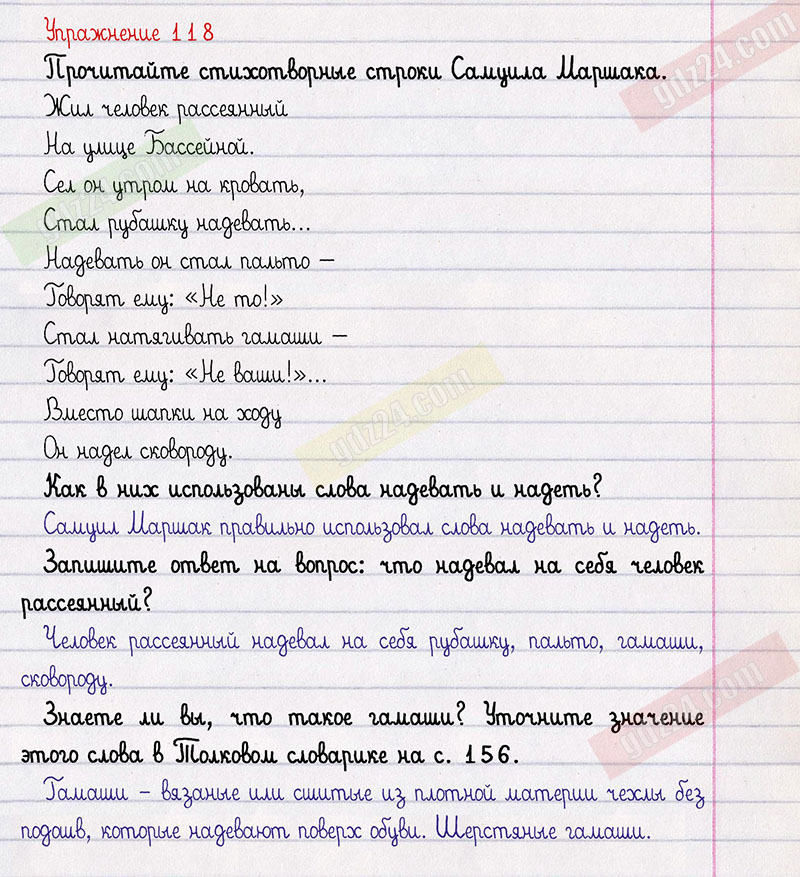 Упражнение 118
Прочитайте стихотворные строки Самуила Маршака.
Жил человек рассеянный
На улице Бассейной.
Сел он утром на кровать,
Стал рубашку надевать...
Надевать он стал пальто –
Говорят ему: «Не то!»
Стал натягивать гамаши –
Говорят ему: «Не ваши!»...
Вместо шапки на ходу
Он надел сковороду.
Как в них использованы слова надевать и надеть?
Самуил Маршак правильно использовал слова надевать и надеть.
Запишите ответ на вопрос: что надевал на себя человек
рассеянный?
Человек рассеянный надевал на себя рубашку, пальто, гамаши,
сковороду.
Знаете ли вы, что такое гамаши? Уточните значение
этого слова в Толковом словарике на с. 156.
Гамаши – вязаные или сшитые из плотной материи чехлы без
подошв, которые надевают поверх обуви. Шерстяные гамаши.
gdz24.com
gdz24.com
gdz24.com
gdz24.com